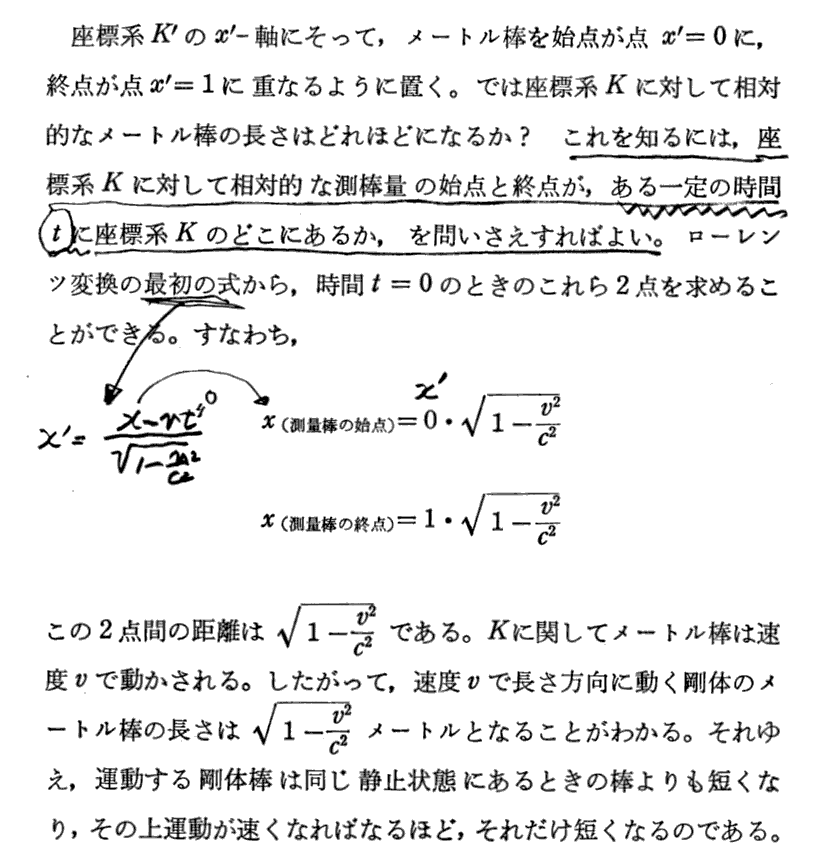 座標系 K′ の x′− 軸にそって，メートル棒を始点が点 x′= 0 に，
終点が点 x′= 1 に 重なるように置く。では座標系 K に対して相対
的なメートル棒の長さはどれほどになるか？ これを知るには，座
標系 K に対して相対的 な測棒量 の始点と終点が，ある一定の時間
t に座標系 K のどこにあるか， を問いさえすればよい。 ローレン
ツ変換の最初の式から，時間 t = 0 のときのこれら 2 点を求めるこ
とができる。すなわち，
x′
x′= (x−vt)/√(1−v²/c²) 0
x (測量棒の始点)= 0・√(1−v²/c²)
x (測量棒の終点)= 1・√(1−v²/c²)
この 2 点間の距離は √(1−v²/c²) である。K に関してメートル棒は速
度 v で動かされる。したがって，速度 v で長さ方向に動く剛体のメ
ートル棒の長さは √(1−v²/c²) メートルとなることがわかる。それゆ
え，運動する 剛体棒 は同じ 静止状態 にあるときの棒よりも短くな
り，その上運動が速くなればなるほど，それだけ短くなるのである。